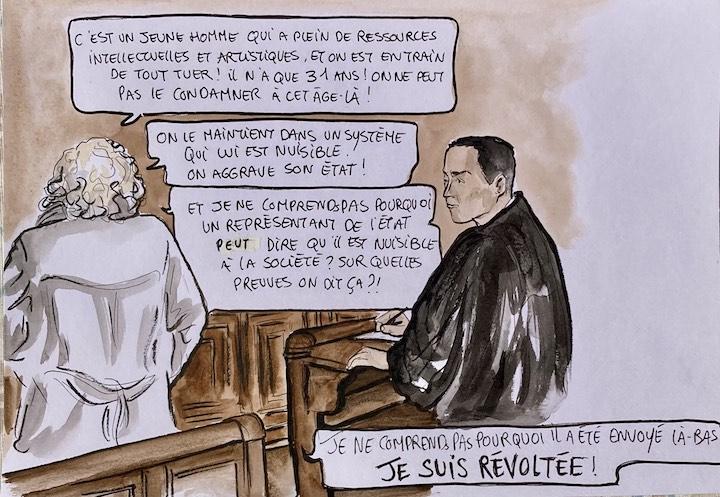 C'EST UN JEUNE HOMME QUI A PLEIN DE RESSOURCES
INTELLECTUELLES ET ARTISTIQUES, ET ON EST EN TRAIN
DE TOUT TUER ! IL N'A QUE 31 ANS ! ON NE PEUT
PAS LE CONDAMNER À CET ÂGE-LÀ !
ON LE MAINTIENT DANS UN SYSTÈME
QUI LUI EST NUISIBLE.
ON AGGRAVE SON ÉTAT !
ET JE NE COMPRENDS PAS POURQUOI
UN REPRÉSENTANT DE L'ÉTAT
PEUT DIRE QU'IL EST NUISIBLE
À LA SOCIÉTÉ ? SUR QUELLES
PREUVES ON DIT ÇA ?!
JE NE COMPRENDS PAS POURQUOI IL A ÉTÉ ENVOYÉ LÀ-BAS
JE SUIS RÉVOLTÉE !